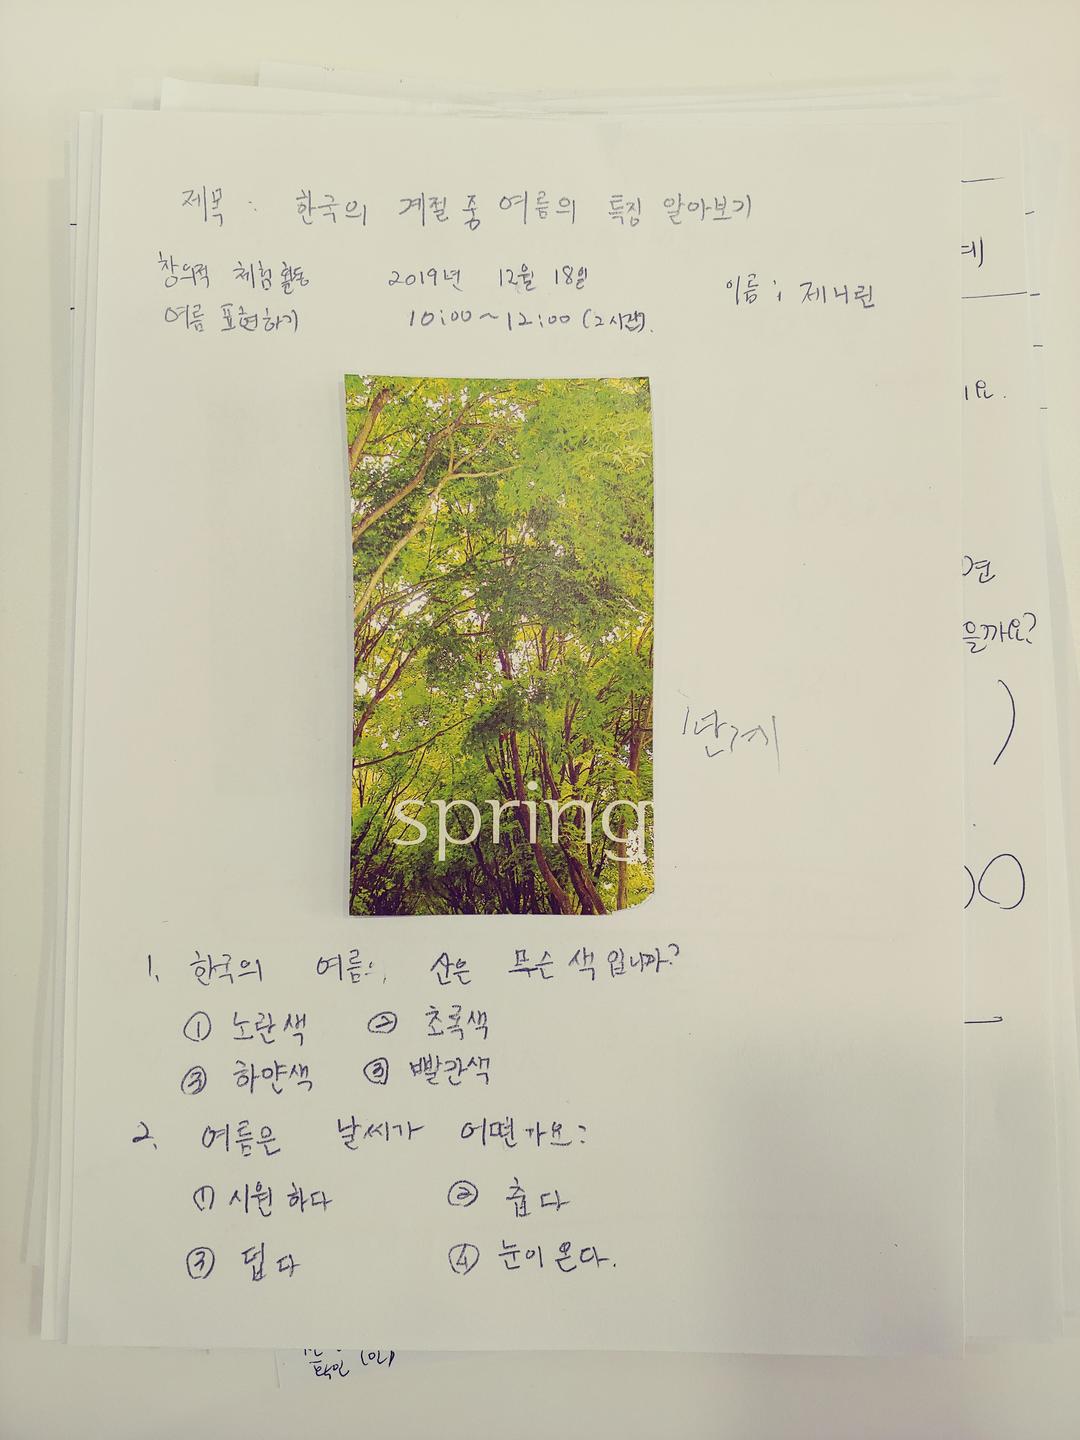 제목 : 한국의 계절 중 여름의 특징 알아보기
창의적 체험활동 2019년 12월 18일
이름 : 제니린
여름 표현하기 10:00~12:00 (2시간).
spring
1단계
1. 한국의 여름은, 산은 무슨 색입니까?
① 노란색 ② 초록색
③ 하얀색 ③ 빨간색
2. 여름은 날씨가 어떤가요?
① 시원하다 ② 춥다
③ 덥다 ④ 눈이 온다.
계
요.
견
을까요?
)
확인 (인)